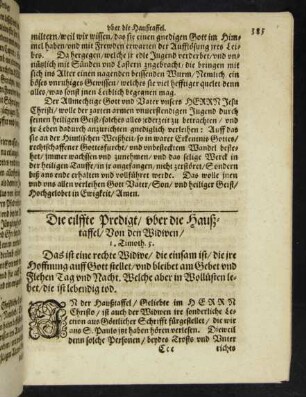 vber die Haußtaffel. 385
miltern/ weil wir wissen/ das sie einen gnedigen Gott im Him-
mel haben/ vnd mit Frewden erwarten der Aufflösung jres Lei-
bes. Da hergegen/ welche jr edte Jugend verderbet/ vnd vns
nützlich mit Sünden vnd Lastern zugebracht/ die bringen mit
sich ins Alter einen nagenden beissenden Wurm/ Nemlich/ ein
böses vnruhiges Gewissen/ welches sie viel hefftiger quelet denn
alles/ was jnen Leiblich begegnen mag.
Der Allmechtige Gott vnd Vater vnsers HERRN Jesu
Christi/ wolle der gantzen armen vnuerstendigen Jugend durch
seinen heiligen Geist/ solches alles jederzeit zu betrachten/ vnd
je Leben dadurch anzurichten gnediglich verleihen: Auff das
sie an der Himlischen Weißheit/ so in warer Erkentnis Gottes/
rechtschaffener Gottesfurcht/ vnd vnbeflecktem Wandel beste-
het/ immer wachssen vnd zunemen/ vnd das selige Werck in
der heiligen Tauffe/ in je angefangen/ nicht zustöret/ Sondern
biß ans ende erhalten vnd vollführet werde. Das wolle jnen
vnd vns allen verleihen Gott Vater/ Son/ vnd heiliger Geist/
Hochgelobet in Ewigkeit/ Amen.
Die eilffte Predigt/ vber die Hauß-
taffel/ Von den Widwen/
1. Timoth. 5.
Das ist eine rechte Widwe/ die einsam ist/ die jre
Hoffnung auff Gott stellet/ vnd bleibet am Gebet vnd
Flehen Tag vnd Nacht. Welche aber in Wollüsten le-
bet/ die ist lebendig tod.
IN der Haußtaffel/ Geliebte im HERRN
Christo/ ist auch der Widwen jre sonderliche Le-
ction aus Göttlicher Schrifft fürgestellet/ die wir
aus S. Paulo jtzt haben hören verlesen. Dieweil
denn solche Personen/ beydes Trosts vnd Vnter
Ccc richts